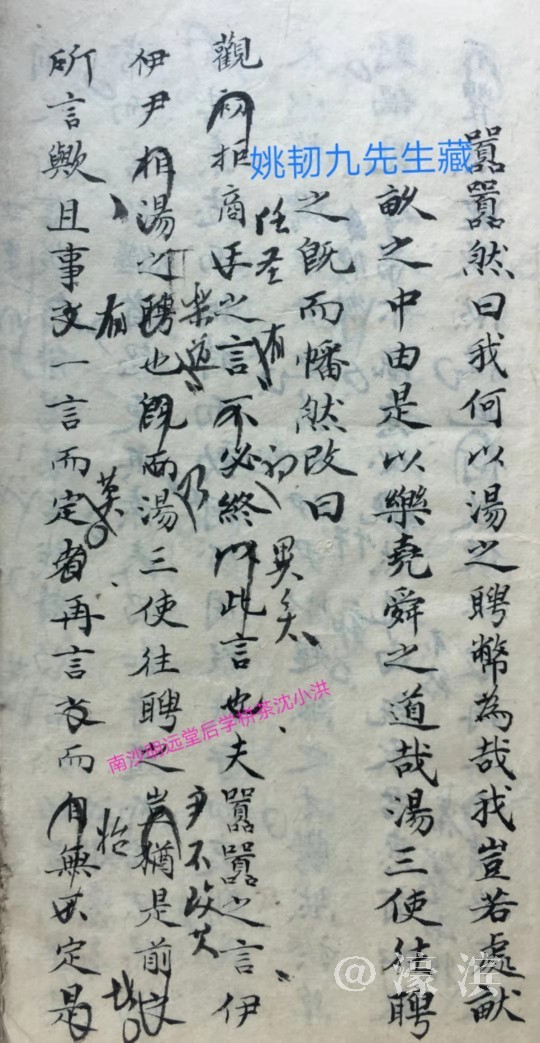 囂囂然曰我何以湯之聘幣為哉我豈若處畎
畝之中由是以樂堯舜之道哉湯三使往聘
之既而幡然改曰
任聖 有 初 異矣
觀初拒商廷之言不必終以此言也夫囂囂之言伊
樂道 乃 尹不改其
伊尹相湯之聘也既而湯三使往聘之豈猶是前
有 莫
所言歟且事又一言而定者再言衣而自無不定是
姚韧九先生藏
南沙 远堂后学桥茶沈小洪
@濠滨